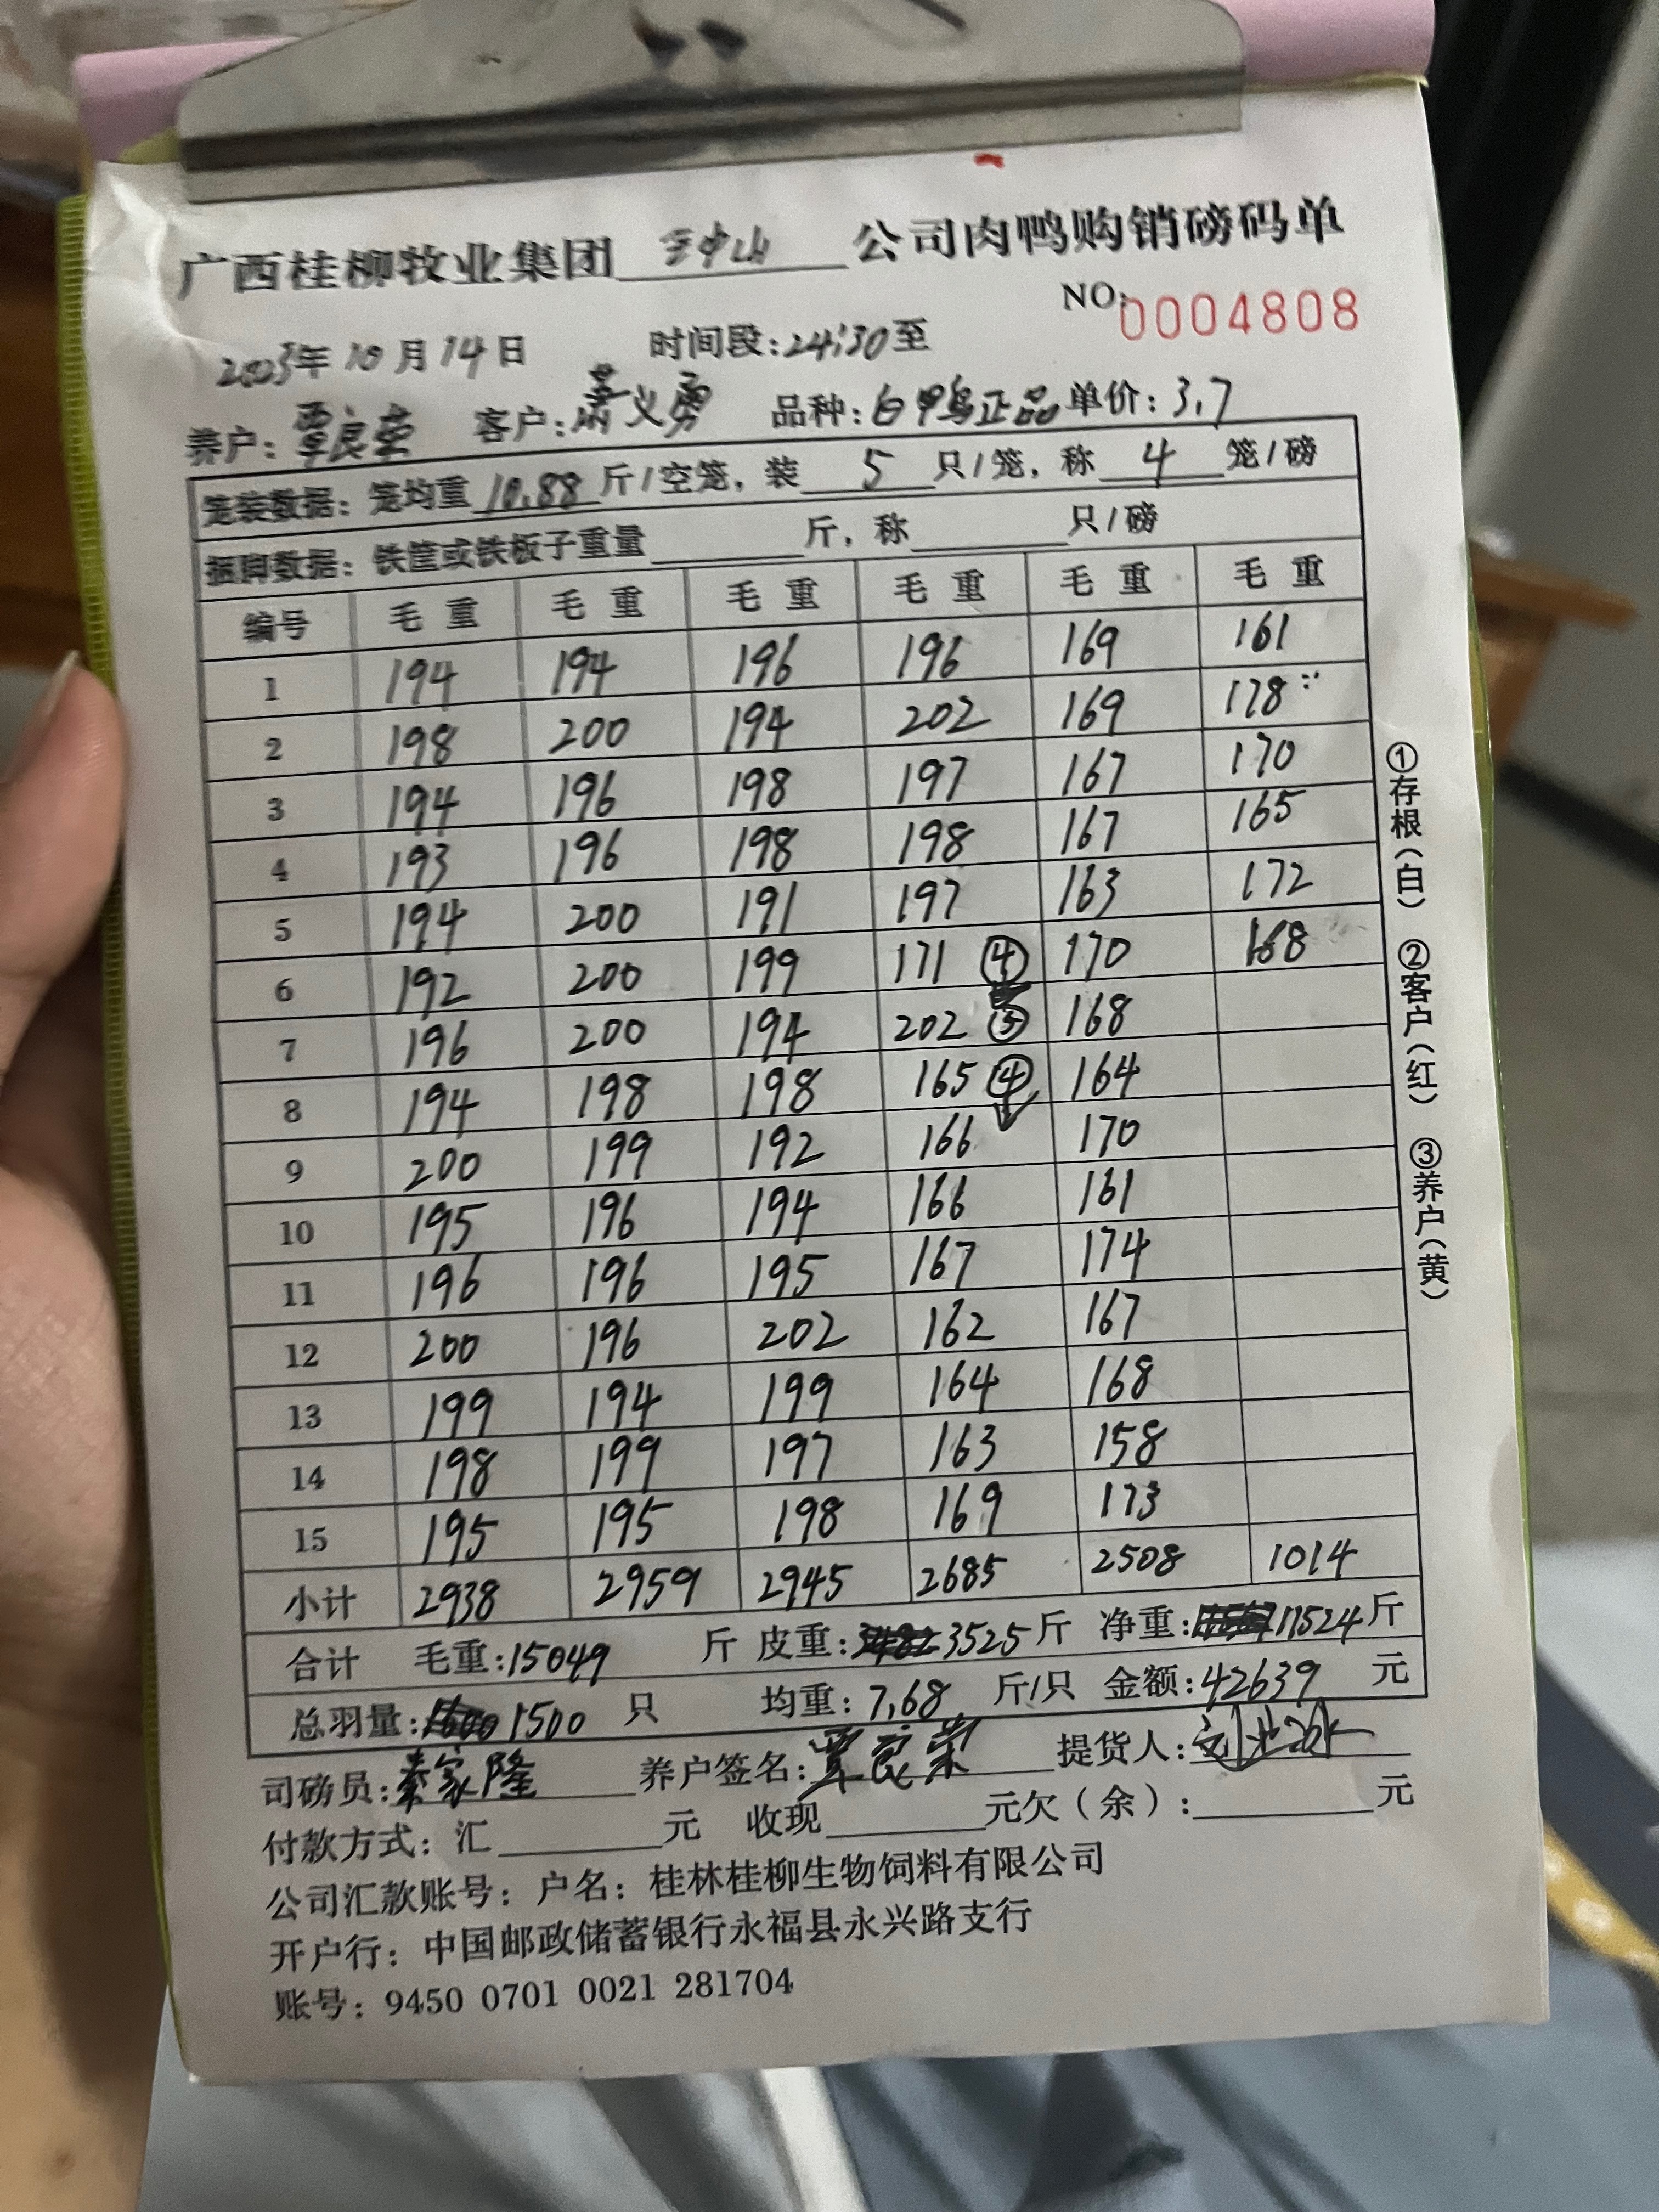 广西桂柳牧业集团 公司肉鸭购销磅码单
NO:0004808
2023年10月14日 时间段:24:30至
养户:覃良荣 客户:萧义勇 品种:白鸭正品 单价:3.7
笼装数据:笼均重10.88斤/空笼,装5只/笼,称4笼/磅
捆脚数据:铁筐或铁板子重量 斤,称 只/磅
编号 毛重 毛重 毛重 毛重 毛重 毛重
1 194 194 196 196 169 161
2 198 200 194 202 169 178
3 194 196 198 197 167 170
4 193 196 198 198 167 165
5 194 200 191 197 163 172
6 192 200 199 171 ④ 170 168
7 196 200 194 202 ⑤ 168
8 194 198 198 165 ④ 164
9 200 199 192 166 170
10 195 196 194 166 161
11 196 196 195 167 174
12 200 196 202 162 167
13 199 194 199 164 168
14 198 199 197 163 158
15 195 195 198 169 173
小计 2938 2959 2945 2685 2508 1014
合计 毛重:15049 斤 皮重:3525斤 净重:11524斤
总羽量:1500 只 均重:7.68 斤/只 金额:42639 元
司磅员:秦家隆 养户签名:覃良荣 提货人:
付款方式:汇 元 收现 元欠(余): 元
公司汇款账号:户名:桂林桂柳生物饲料有限公司
开户行:中国邮政储蓄银行永福县永兴路支行
账号:9450 0701 0021 281704
①存根(白) ②客户(红) ③养户(黄)